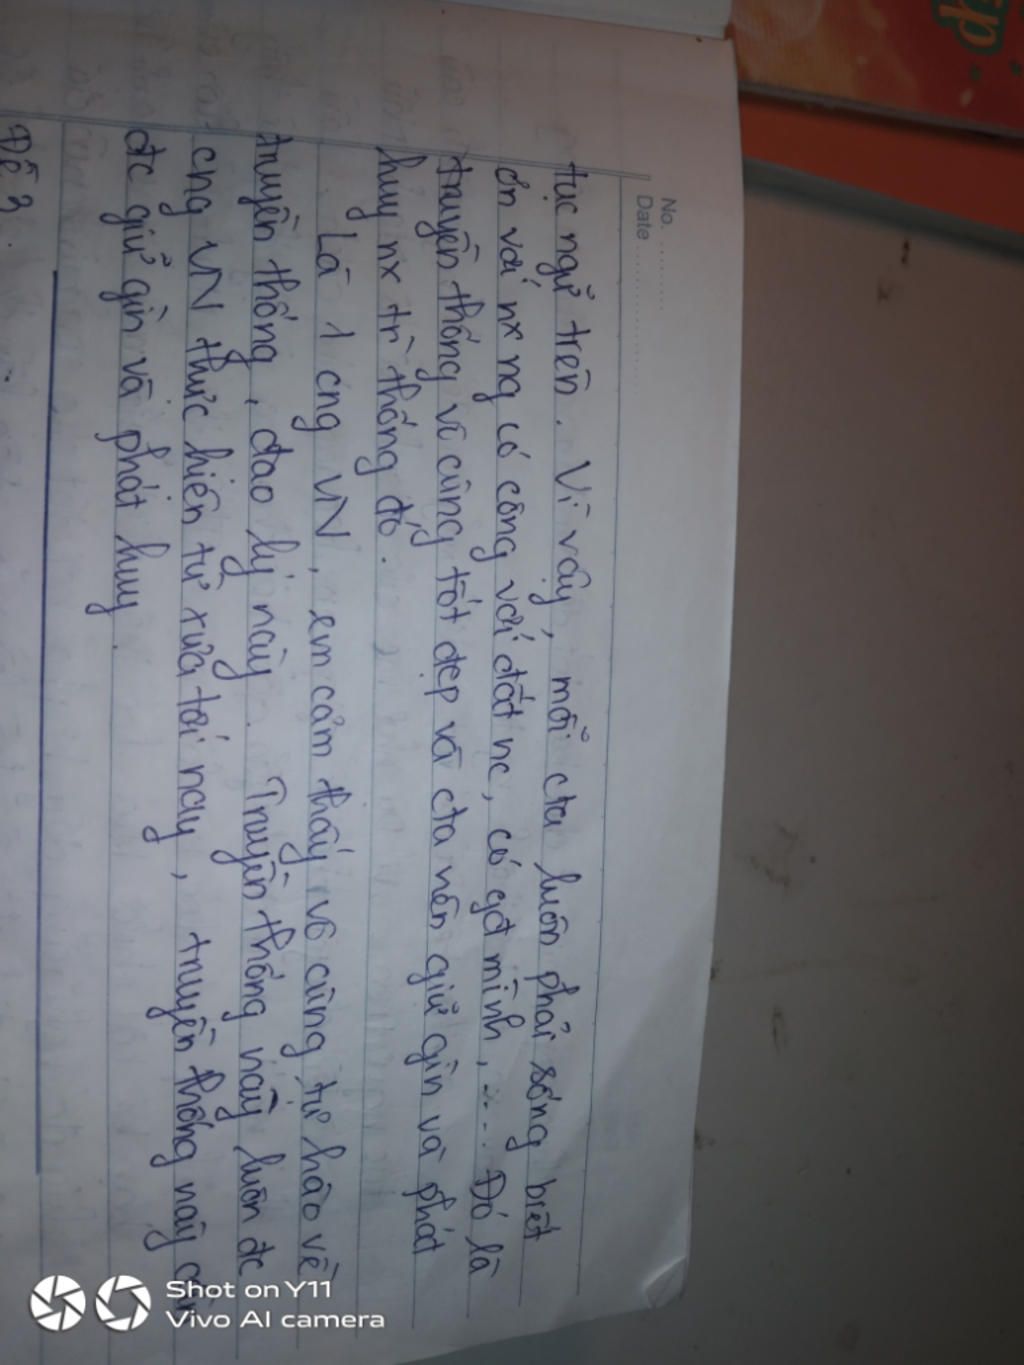 No. ............
Date ....................
tục ngữ trên. Vì vậy, mỗi cta luôn phải sống biết
ơn với nx ng có công với đất nc, có gđ mình, .... Đó là
truyền thống vô cùng tốt đẹp và cta nên giữ gìn và phát
huy nx tr` thống đó.
Là 1 cng VN, em cảm thấy vô cùng tự hào về
truyền thống, đạo lý này. Truyền thống này luôn đc
cng VN thực hiện từ xưa tới nay, truyền thống này cần
đc giữ gìn và phát huy.
Đề 3.
Shot on Y11
Vivo AI camera